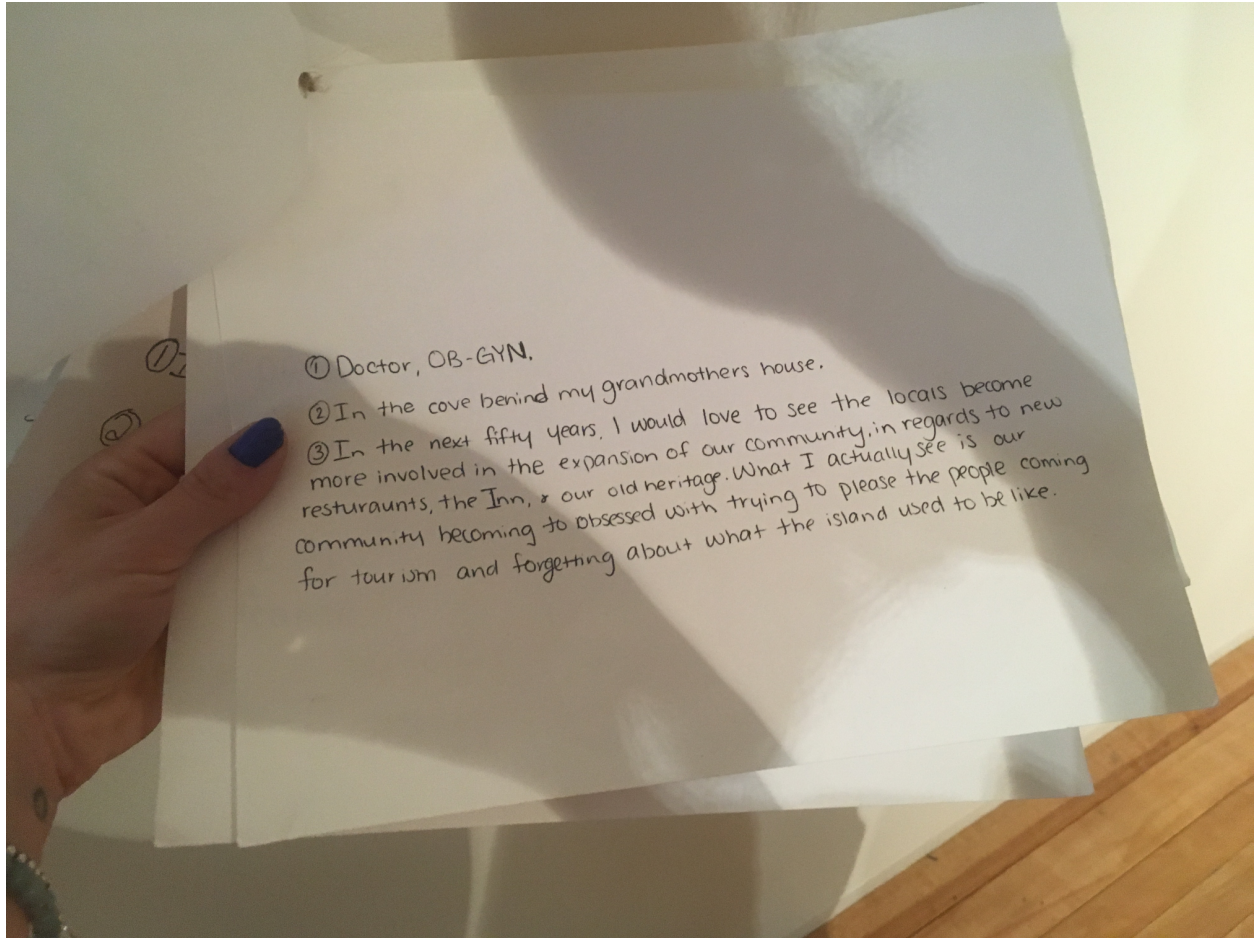 ① Doctor, OB-GYN.
② In the cove behind my grandmothers house.
③ In the next fifty years, I would love to see the locals become
more involved in the expansion of our community, in regards to new
resturaunts, the Inn, & our old heritage. What I actually see is our
community becoming to obsessed with trying to please the people coming
for tourism and forgetting about what the island used to be like.
①I
②